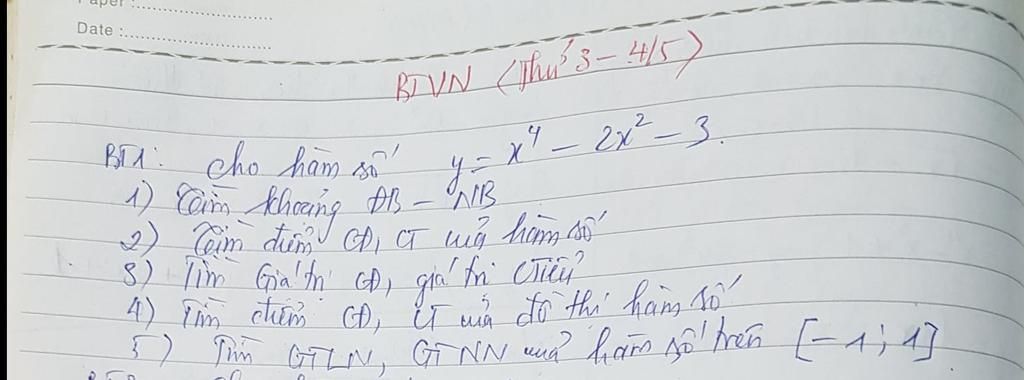 Paper :
Date :
BTVN (Thứ 3 - 4/5)
BT1: Cho hàm số y = x⁴ - 2x² - 3.
1) Tìm khoảng ĐB - NB
2) Tìm điểm CĐ, CT của hàm số
3) Tìm Giá trị CĐ, giá trị CTiểu
4) Tìm điểm CĐ, CT của đồ thị hàm số
5) Tìm GTLN, GTNN của hàm số trên [-1; 1]